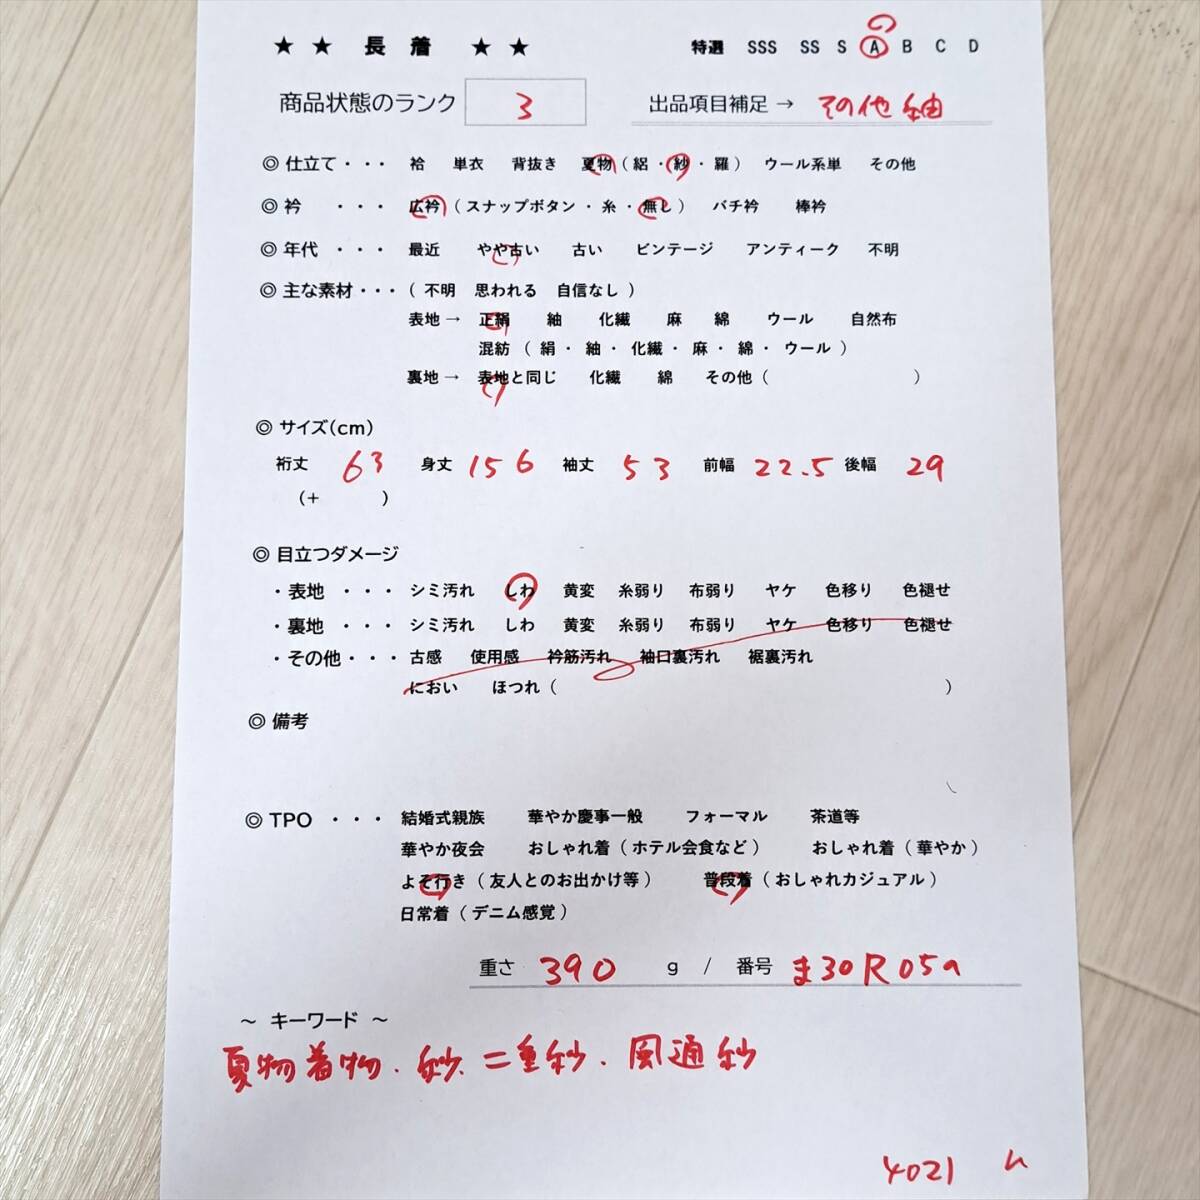 ★ ★ 長 着 ★ ★ 特選 SSS SS S A B C D
商品状態のランク 3 出品項目補足 → その他 紬
◎ 仕立て・・・ 袷 単衣 背抜き 夏物 ( 絽 ・ 紗 ・ 羅 ) ウール系単 その他
◎ 衿 ・・・ 広衿 ( スナップボタン ・ 糸 ・ 無し ) バチ衿 棒衿
◎ 年代 ・・・ 最近 やや古い 古い ビンテージ アンティーク 不明
◎ 主な素材・・・ ( 不明 思われる 自信なし )
表地 → 正絹 紬 化繊 麻 綿 ウール 自然布
混紡 ( 絹 ・ 紬 ・ 化繊 ・ 麻 ・ 綿 ・ ウール )
裏地 → 表地と同じ 化繊 綿 その他 ( )
◎ サイズ(cm)
裄丈 63 身丈 156 袖丈 53 前幅 22.5 後幅 29
(+ )
◎ 目立つダメージ
・表地 ・・・ シミ汚れ しわ 黄変 糸弱り 布弱り ヤケ 色移り 色褪せ
・裏地 ・・・ シミ汚れ しわ 黄変 糸弱り 布弱り ヤケ 色移り 色褪せ
・その他・・・ 古感 使用感 衿筋汚れ 袖口裏汚れ 裾裏汚れ
におい ほつれ ( )
◎ 備考
◎ TPO ・・・ 結婚式親族 華やか慶事一般 フォーマル 茶道等
華やか夜会 おしゃれ着 ( ホテル会食など ) おしゃれ着 ( 華やか )
よそ行き ( 友人とのお出かけ等 ) 普段着 ( おしゃれカジュアル )
日常着 ( デニム感覚 )
重さ 390 g / 番号 ま30R05
～ キーワード ～
夏物着物、紗、二重紗、風通紗
4021